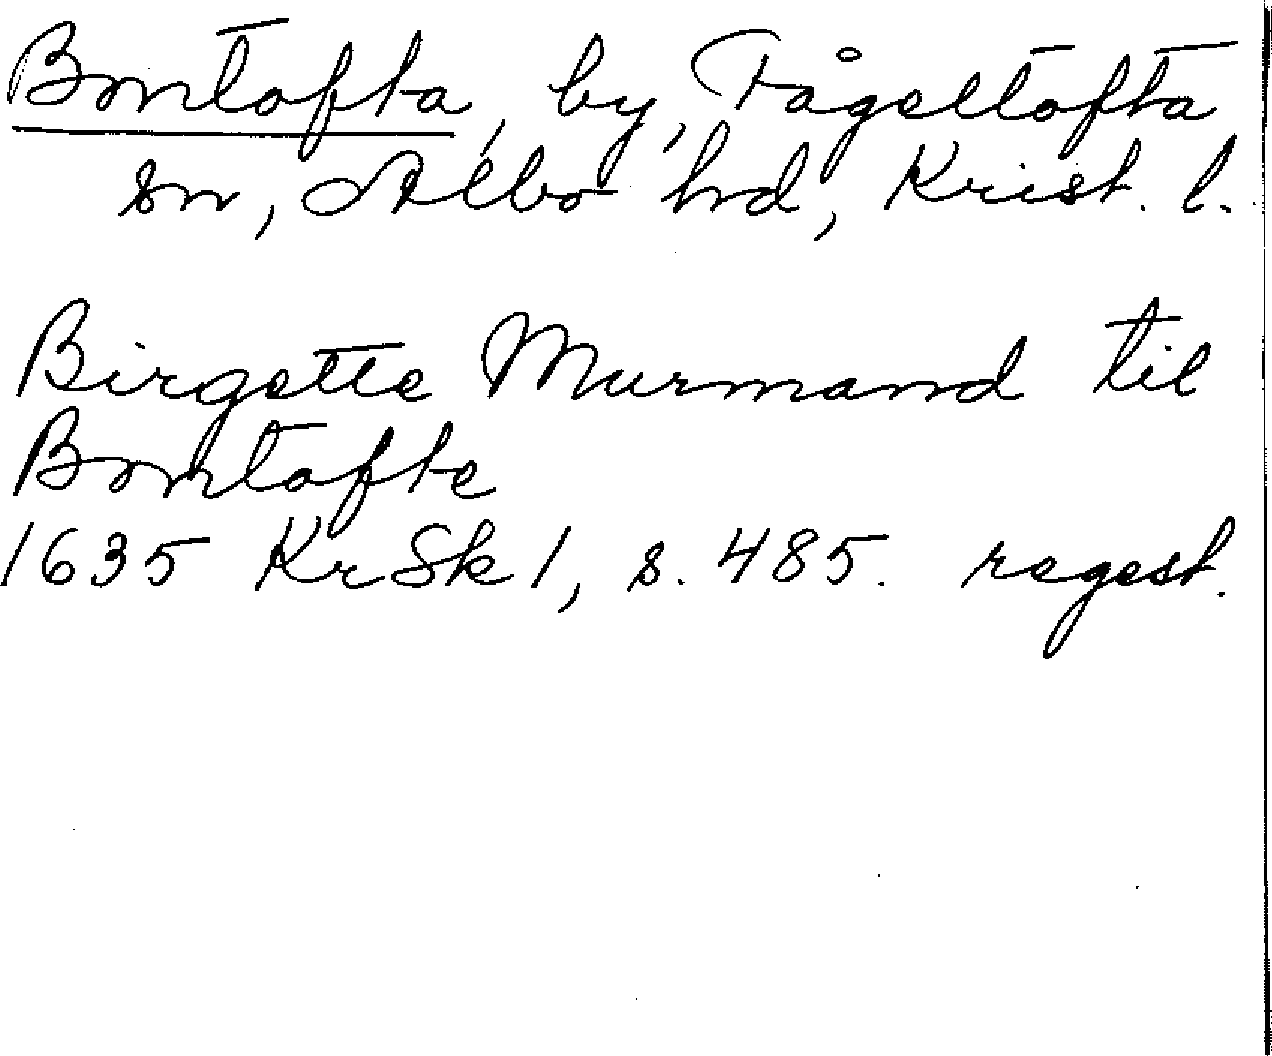 Bontofta, by, Fågeltofta
sn, Albo hd, Krist. l.
Birgette Murmand til
Bontofte
1635 KrSk 1, s. 485. regest.